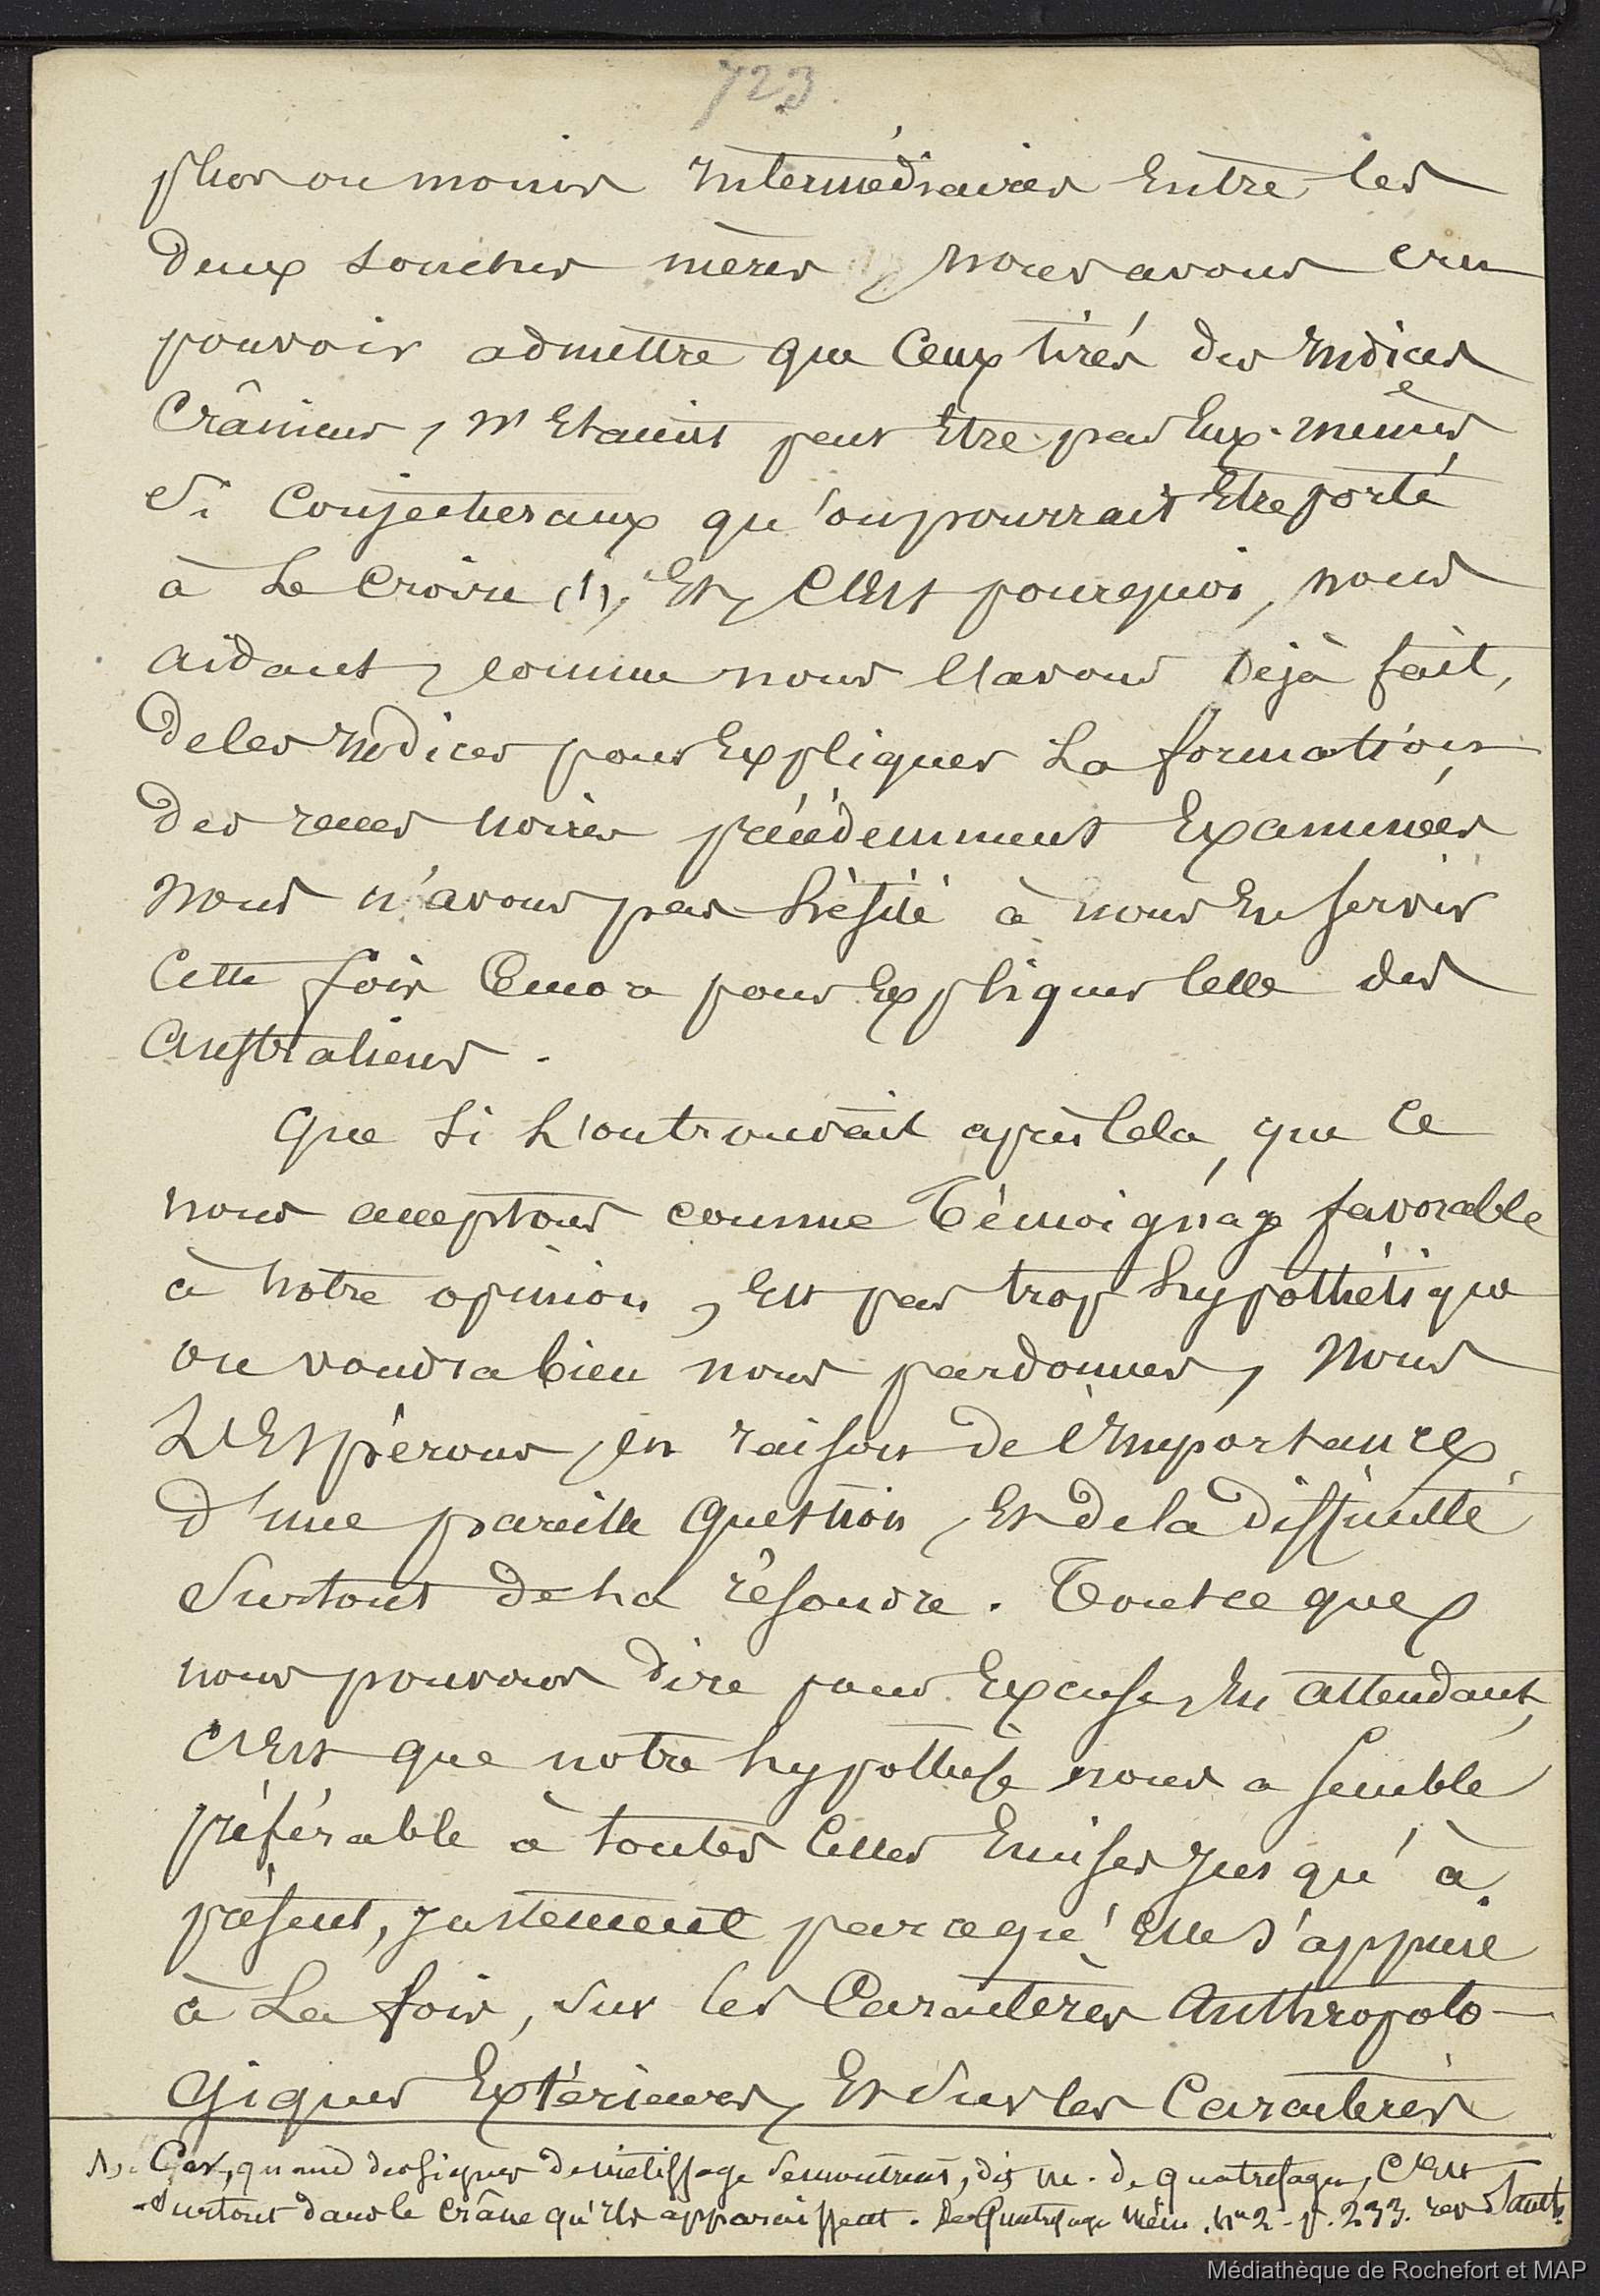 723.
plus ou moins Intermédiaires Entre les
Deux souches mères, nous avons cru
pouvoir admettre que Ceux tirés des Indices
Crâniens, n'Etaient peut Etre pas Eux-mêmes
si Conjecturaux qu'on pourrait Etre porté
à Le Croire (1), Et, C'Est pourquoi, nous
aidant, comme nous l'avons Déjà fait,
de ces Indices pour Expliquer La formation
Des races noires précédemment Examinées
nous n'avons pas hésité à nous En servir
Cette fois Encore pour Expliquer Celle des
Australiens.
Que si L'on trouvait après Cela, que Ce
nous acceptons comme Témoignage favorable
à notre opinion, Est par trop hypothétique
on voudra bien nous pardonner, Nous
L'Espérons, en raison de l'Importance
D'une pareille Question, Et de la Difficulté
Surtout de La résoudre. Tout ce que
nous pouvons Dire pour Excuse, En attendant,
C'Est que notre hypothèse nous a semblé
préférable à toutes Celles Emises Jusqu'à
présent, Justement parce qu'Elle s'appuie
à La fois, sur les Caractères Anthropolo-
Giques Extérieurs, Et sur les Caractères
1). Car, quand des signes de métissage se montrent, dit M. de Quatrefages, C'Est
surtout dans le crâne qu'ils apparaissent. De Quatrefages Mém. nº 2 - p. 233. rev
Médiathèque de Rochefort et MAP